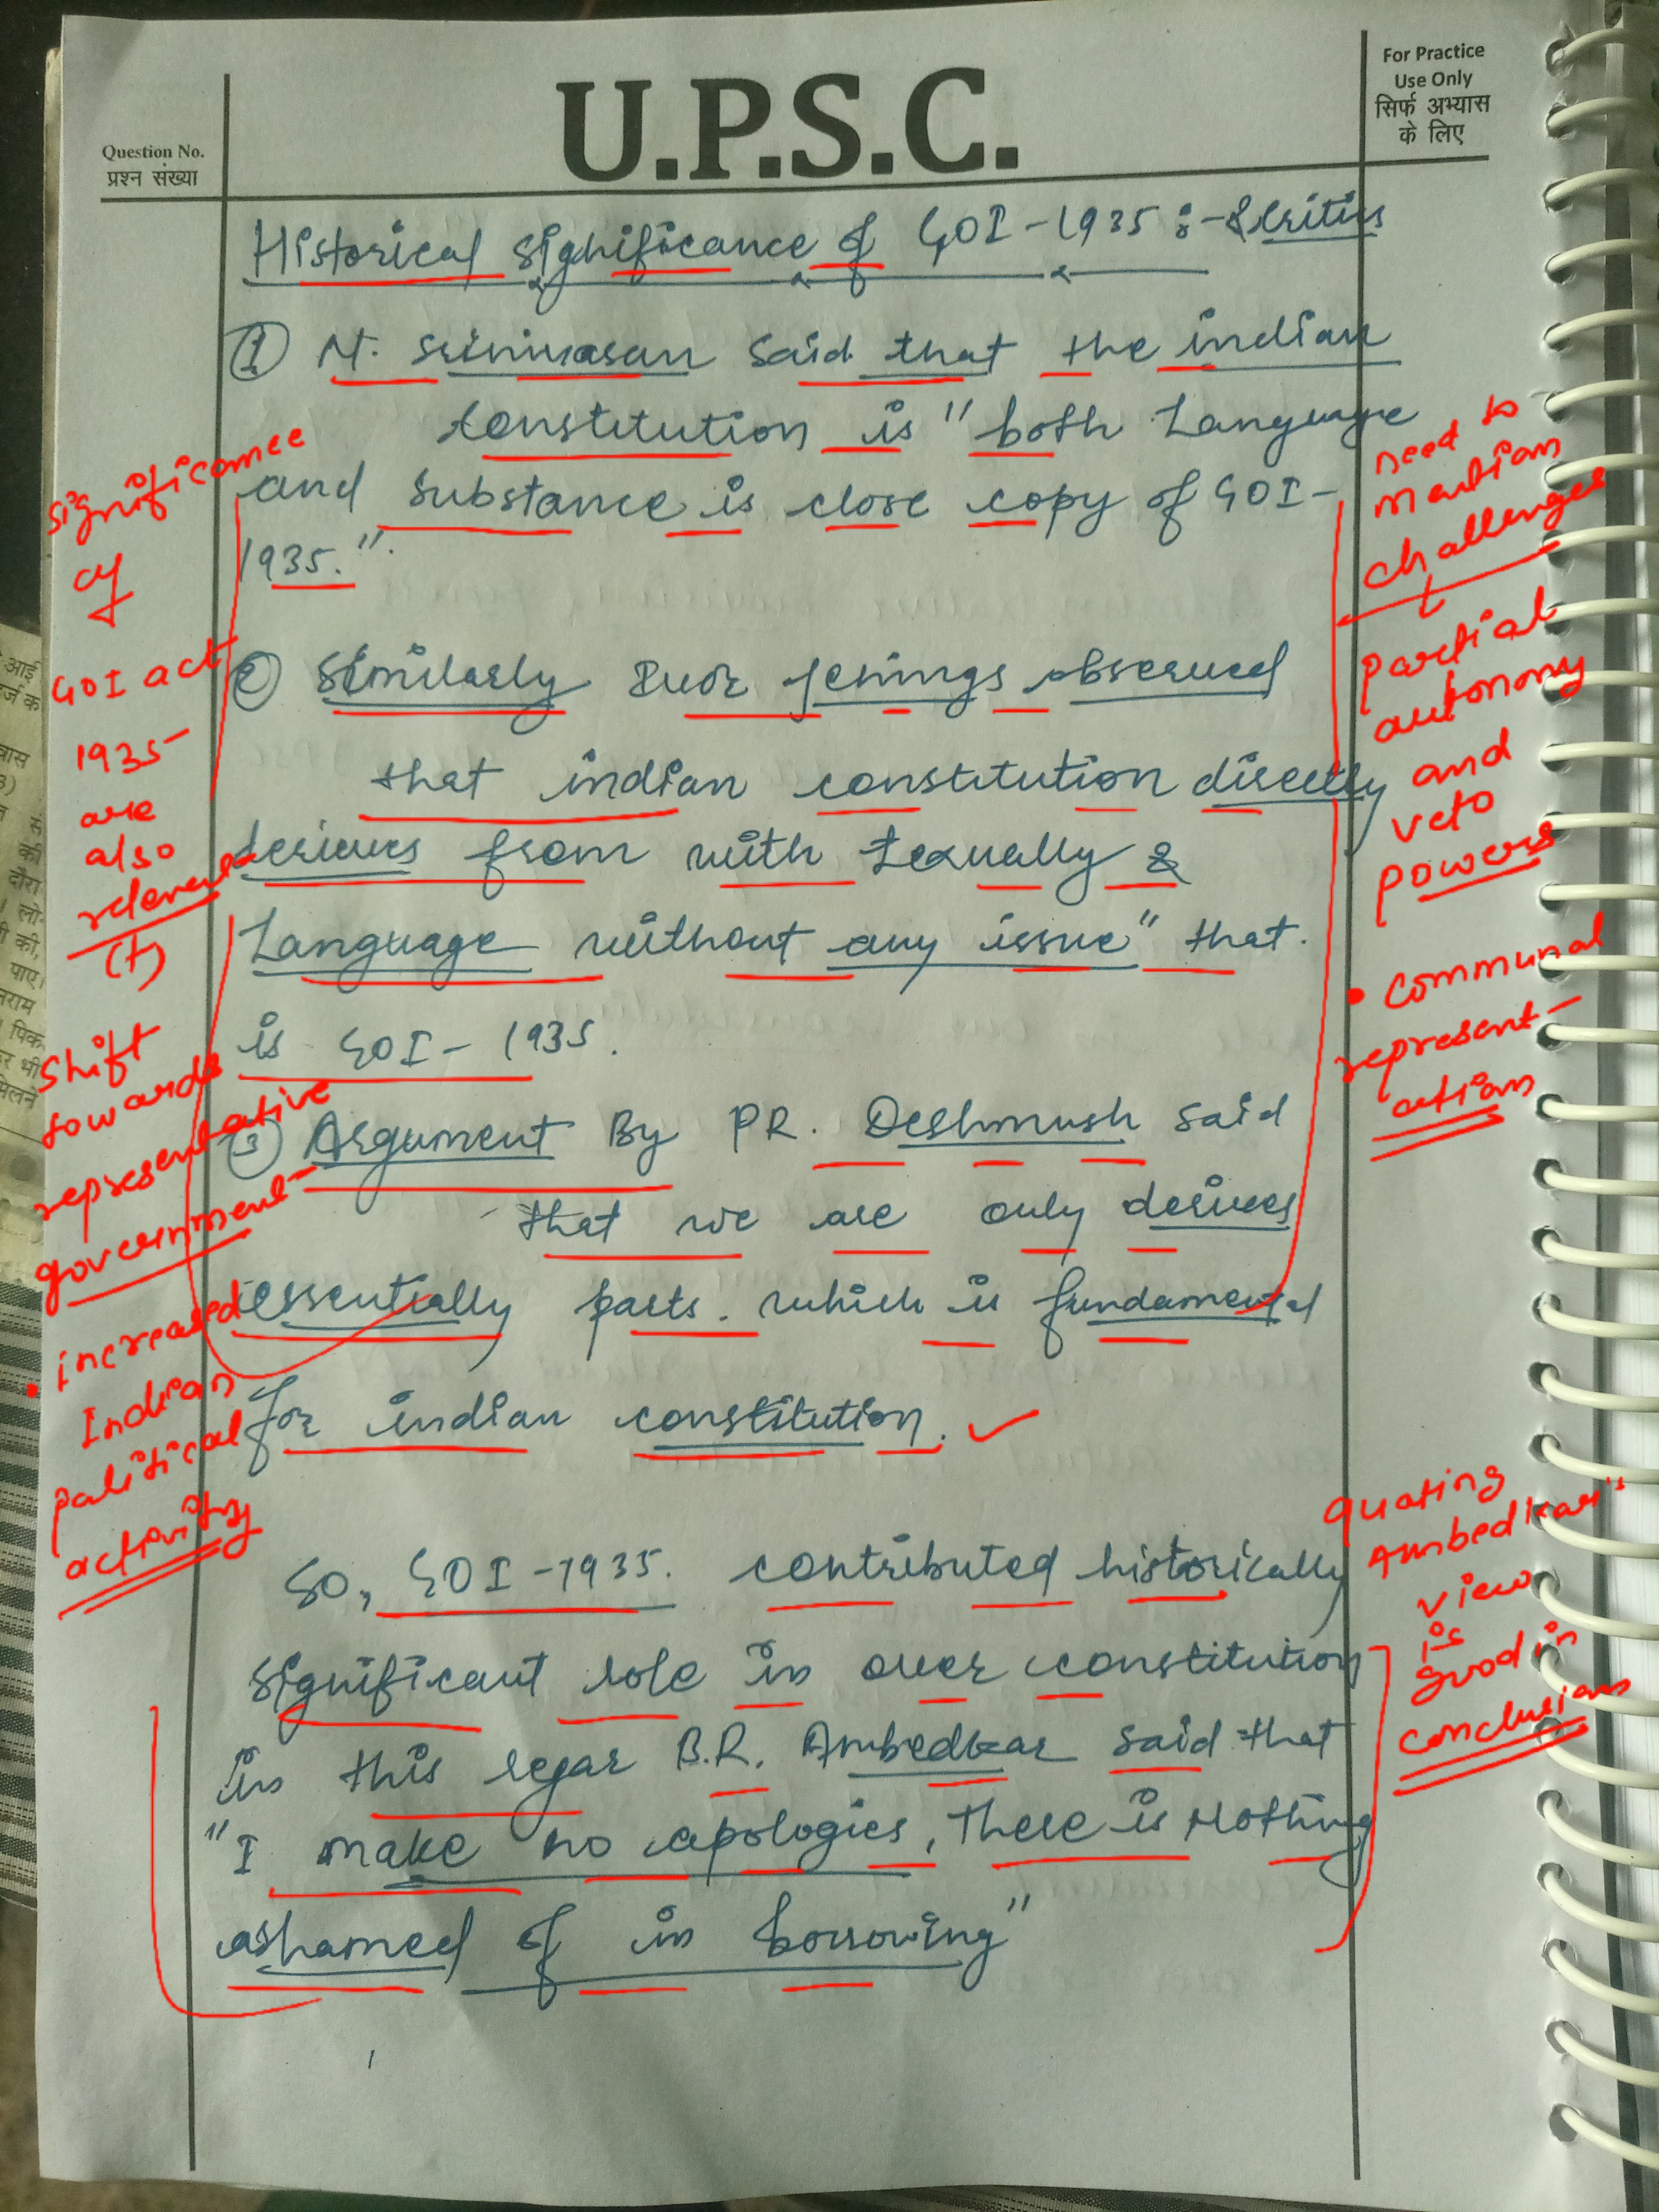 U.P.S.C.
Question No.
प्रश्न संख्या
For Practice
Use Only
सिर्फ अभ्यास
के लिए
Historical significance of GOI-1935 :-
① N. Srinivasan said that the indian
constitution is "both Language
and substance is close copy of GOI-
1935."
② Similarly Ivor Jenings observed
that indian constitution directly
derives from with texually &
Language without any issue" that
is GOI- 1935.
③ Argument By PR. Deshmush said
that we are only derives
essentially parts which is fundamental
for indian constitution.
So, GOI-1935. contributed historically
significant role in over constitution
in this regar B.R. Ambedkar said that
"I make no apologies, There is Nothing
ashamed of in borrowing"
significance
of
GOI act
1935
are
also
relevant
(+)
shift
towards
representative
government
• increased
Indian
political
activity
need to
mention
challenges
partial
autonomy
and
veto
powers
• communal
represent-
ation
quoting
Ambedkar's
view
is
good in
conclusion
आई
र्ज क
की
दौरा
लो-
की,
पाए।
पिक
भी
मिलने